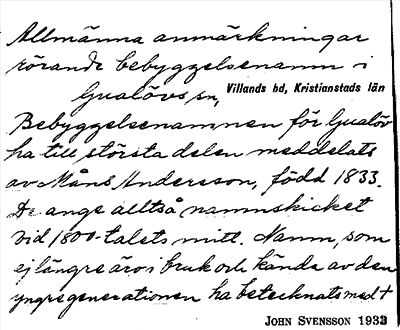 Allmänna anmärkningar
rörande bebyggelsenamn i
Gualövs sn, Villands hd, Kristianstads län
Bebyggelsenamnen för Gualöv
ha till största delen meddelats
av Måns Andersson, född 1833.
De ange alltså namnskicket
vid 1800-talets mitt. Namn, som
ej längre äro i bruk och kända av den
yngre generationen ha betecknats med +
JOHN SVENSSON 1933